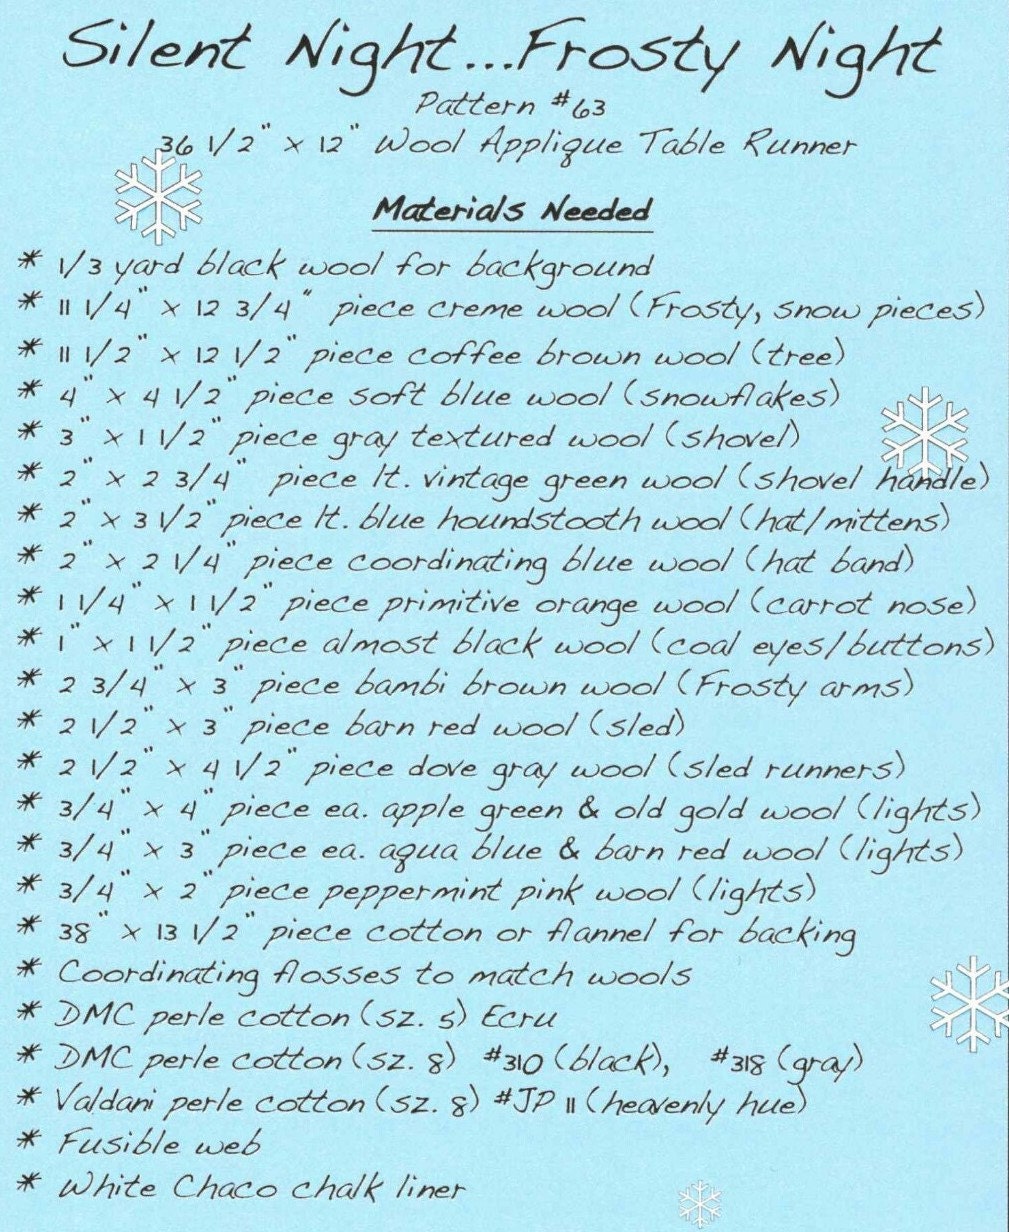 Silent Night...Frosty Night
Pattern #63
36 1/2" x 12" Wool Applique Table Runner
Materials Needed
* 1/3 yard black wool for background
* 11 1/4" x 12 3/4" piece creme wool (Frosty, snow pieces)
* 11 1/2" x 12 1/2" piece coffee brown wool (tree)
* 4" x 4 1/2" piece soft blue wool (snowflakes)
* 3" x 1 1/2" piece gray textured wool (shovel)
* 2" x 2 3/4" piece lt. vintage green wool (shovel handle)
* 2" x 3 1/2" piece lt. blue houndstooth wool (hat/mittens)
* 2" x 2 1/4" piece coordinating blue wool (hat band)
* 1 1/4" x 1 1/2" piece primitive orange wool (carrot nose)
* 1" x 1 1/2" piece almost black wool (coal eyes/buttons)
* 2 3/4" x 3" piece bambi brown wool (Frosty arms)
* 2 1/2" x 3" piece barn red wool (sled)
* 2 1/2" x 4 1/2" piece dove gray wool (sled runners)
* 3/4" x 4" piece ea. apple green & old gold wool (lights)
* 3/4" x 3" piece ea. aqua blue & barn red wool (lights)
* 3/4" x 2" piece peppermint pink wool (lights)
* 38" x 13 1/2" piece cotton or flannel for backing
* Coordinating flosses to match wools
* DMC perle cotton (sz. 5) Ecru
* DMC perle cotton (sz. 8) #310 (black), #318 (gray)
* Valdani perle cotton (sz. 8) #JP 11 (heavenly hue)
* Fusible web
* White Chaco chalk liner